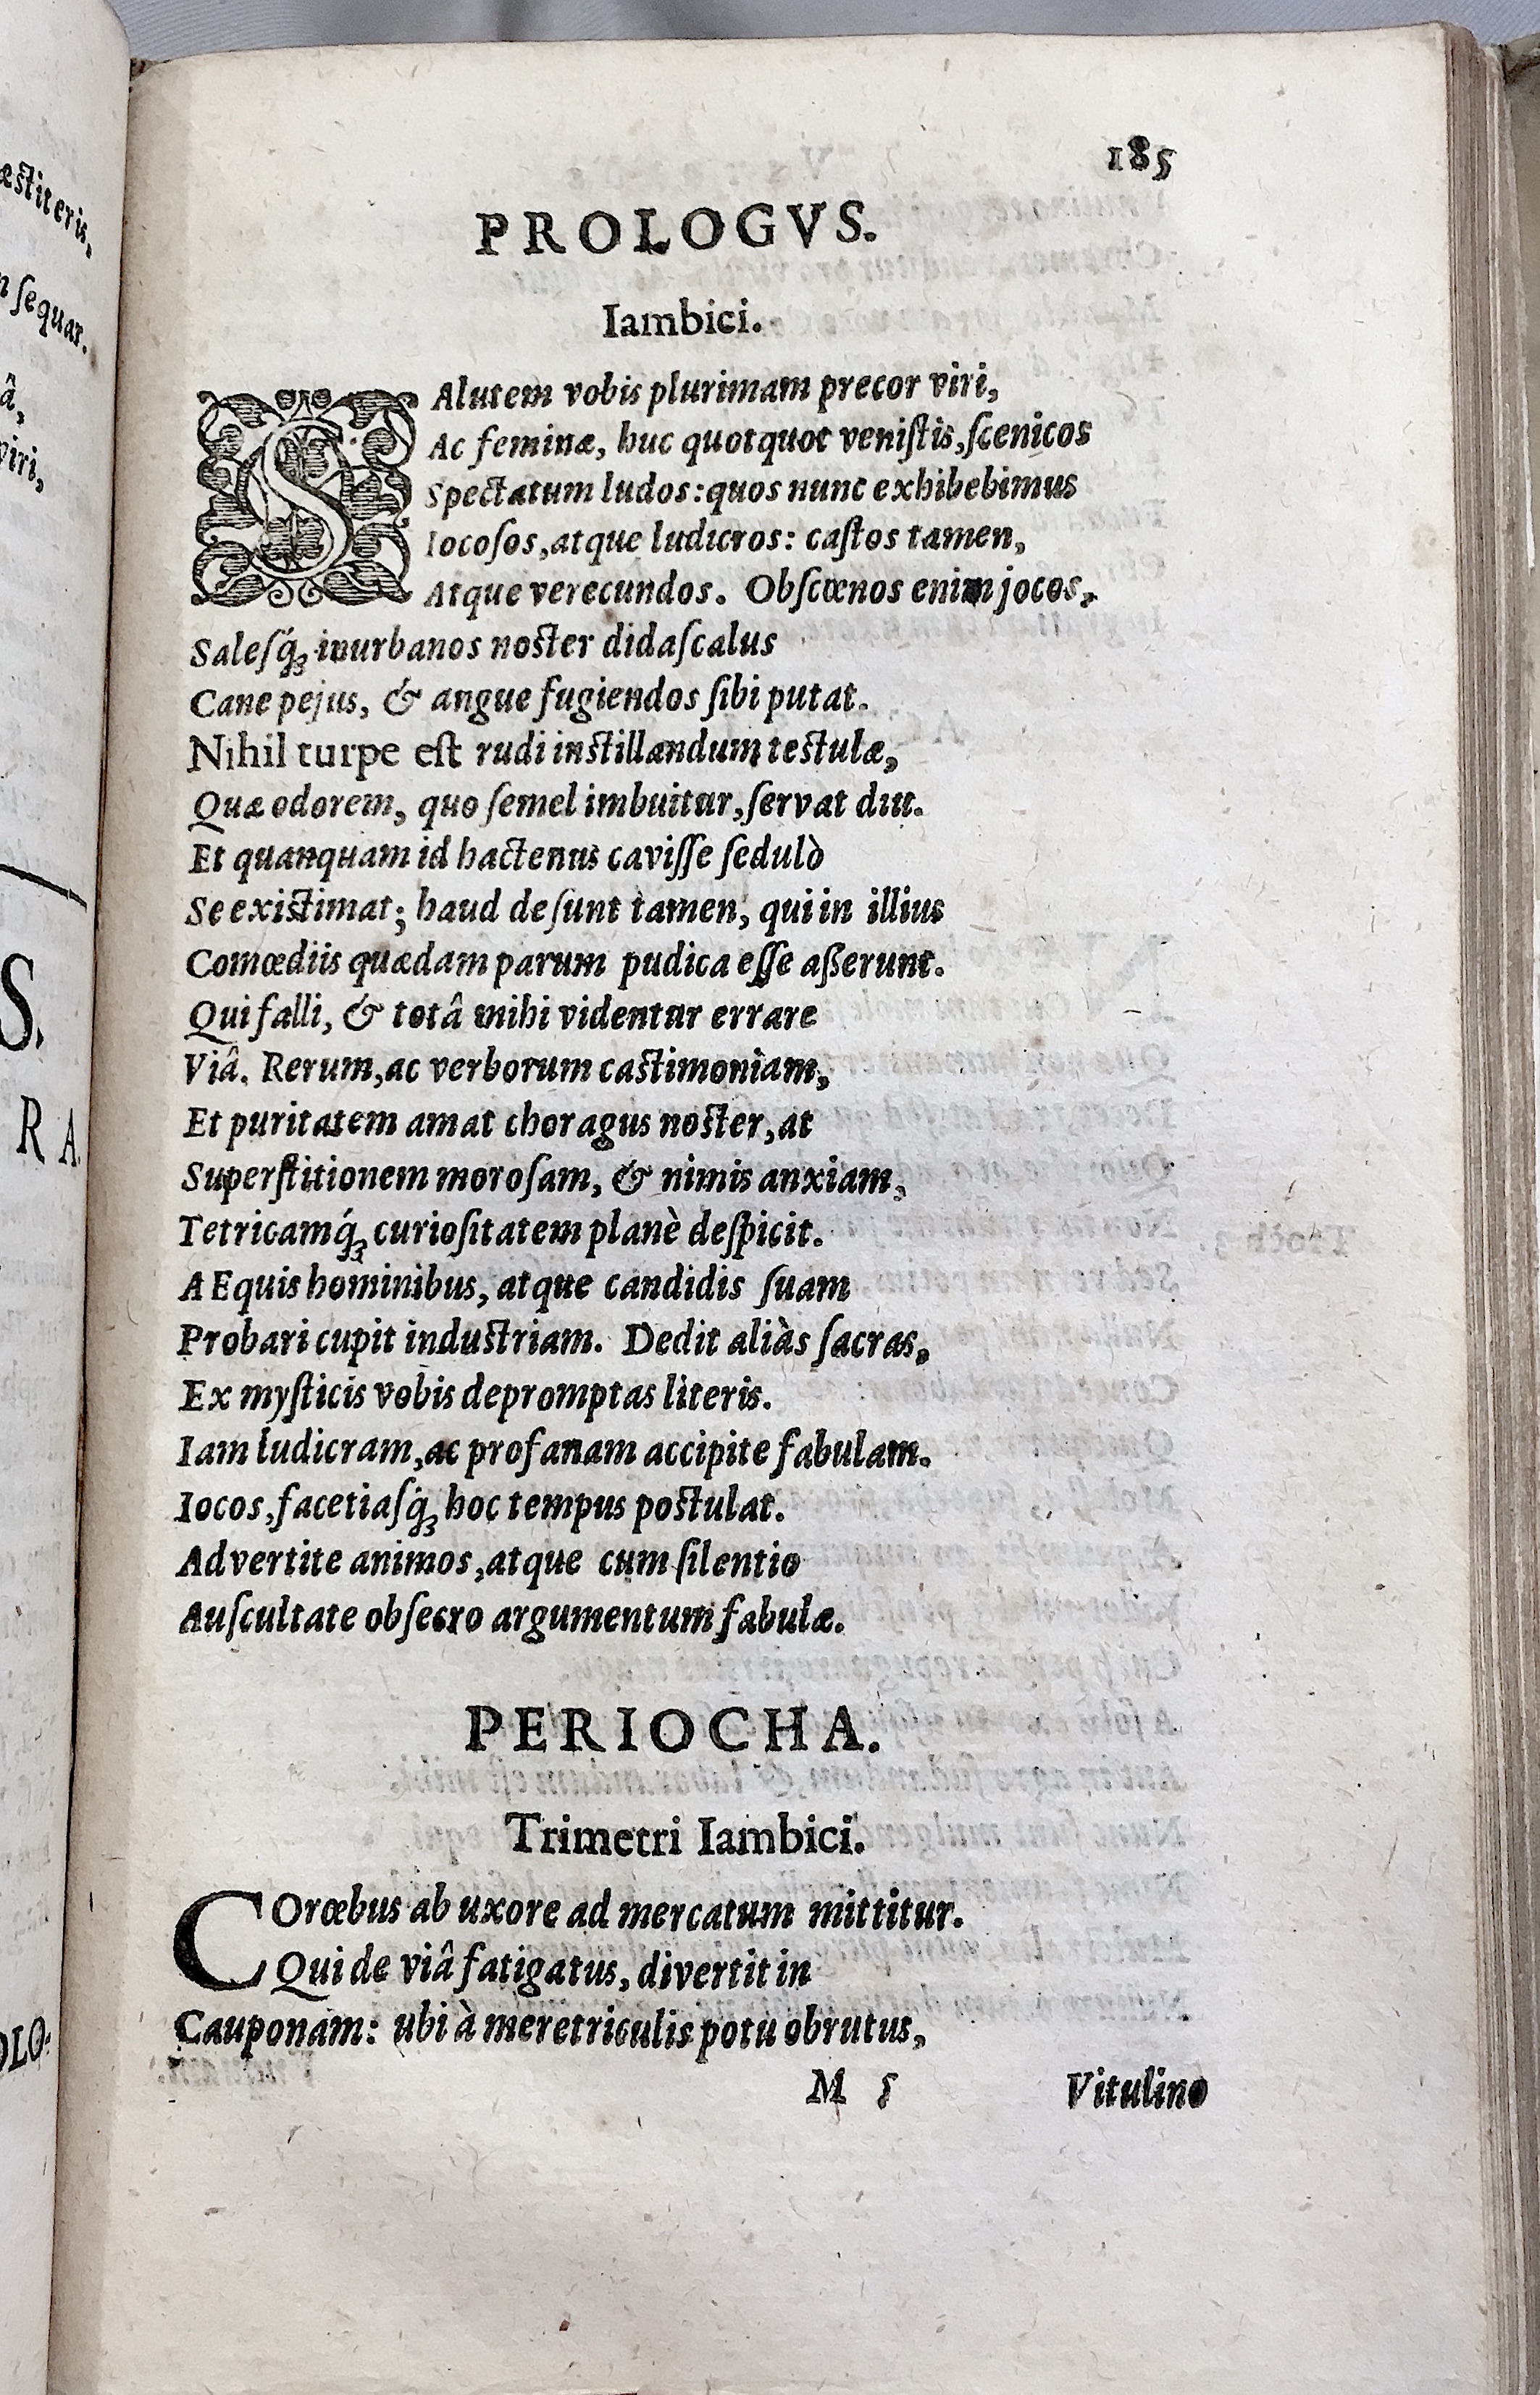 æstiteris,
n sequar.
â,
viri,
S.
R A
OLO-
185
PROLOGVS.
Iambici.
SAlutem vobis plurimam precor viri,
Ac feminæ, huc quotquot veniſtis, ſcenicos
Spectatum ludos: quos nunc exhibebimus
Iocoſos, atque ludicros: caſtos tamen,
Atque verecundos. Obſcœnos enim jocos,
Saleſq́; inurbanos noſter didaſcalus
Cane pejus, & angue fugiendos ſibi putat.
Nihil turpe eſt rudi inſtillandum teſtulæ,
Quæ odorem, quo ſemel imbuitur, ſervat diu.
Et quanquam id hactenus caviſſe ſedulò
Se exiſtimat; haud deſunt tamen, qui in illius
Comœdiis quædam parum pudica eſſe aßerunt.
Qui falli, & totâ mihi videntur errare
Viâ. Rerum, ac verborum caſtimoniam,
Et puritatem amat choragus noſter, at
Superſtitionem moroſam, & nimis anxiam,
Tetricamq́; curioſitatem planè deſpicit.
AEquis hominibus, atque candidis ſuam
Probari cupit induſtriam. Dedit aliàs ſacras,
Ex myſticis vobis depromptas literis.
Iam ludicram, ac profanam accipite fabulam.
Iocos, facetiaſq́; hoc tempus poſtulat.
Advertite animos, atque cum ſilentio
Auſcultate obſecro argumentum fabulæ.
PERIOCHA.
Trimetri Iambici.
COrœbus ab uxore ad mercatum mittitur.
Qui de viâ fatigatus, divertit in
Cauponam: ubi à meretriculis potu obrutus,
M 5 Vitulino